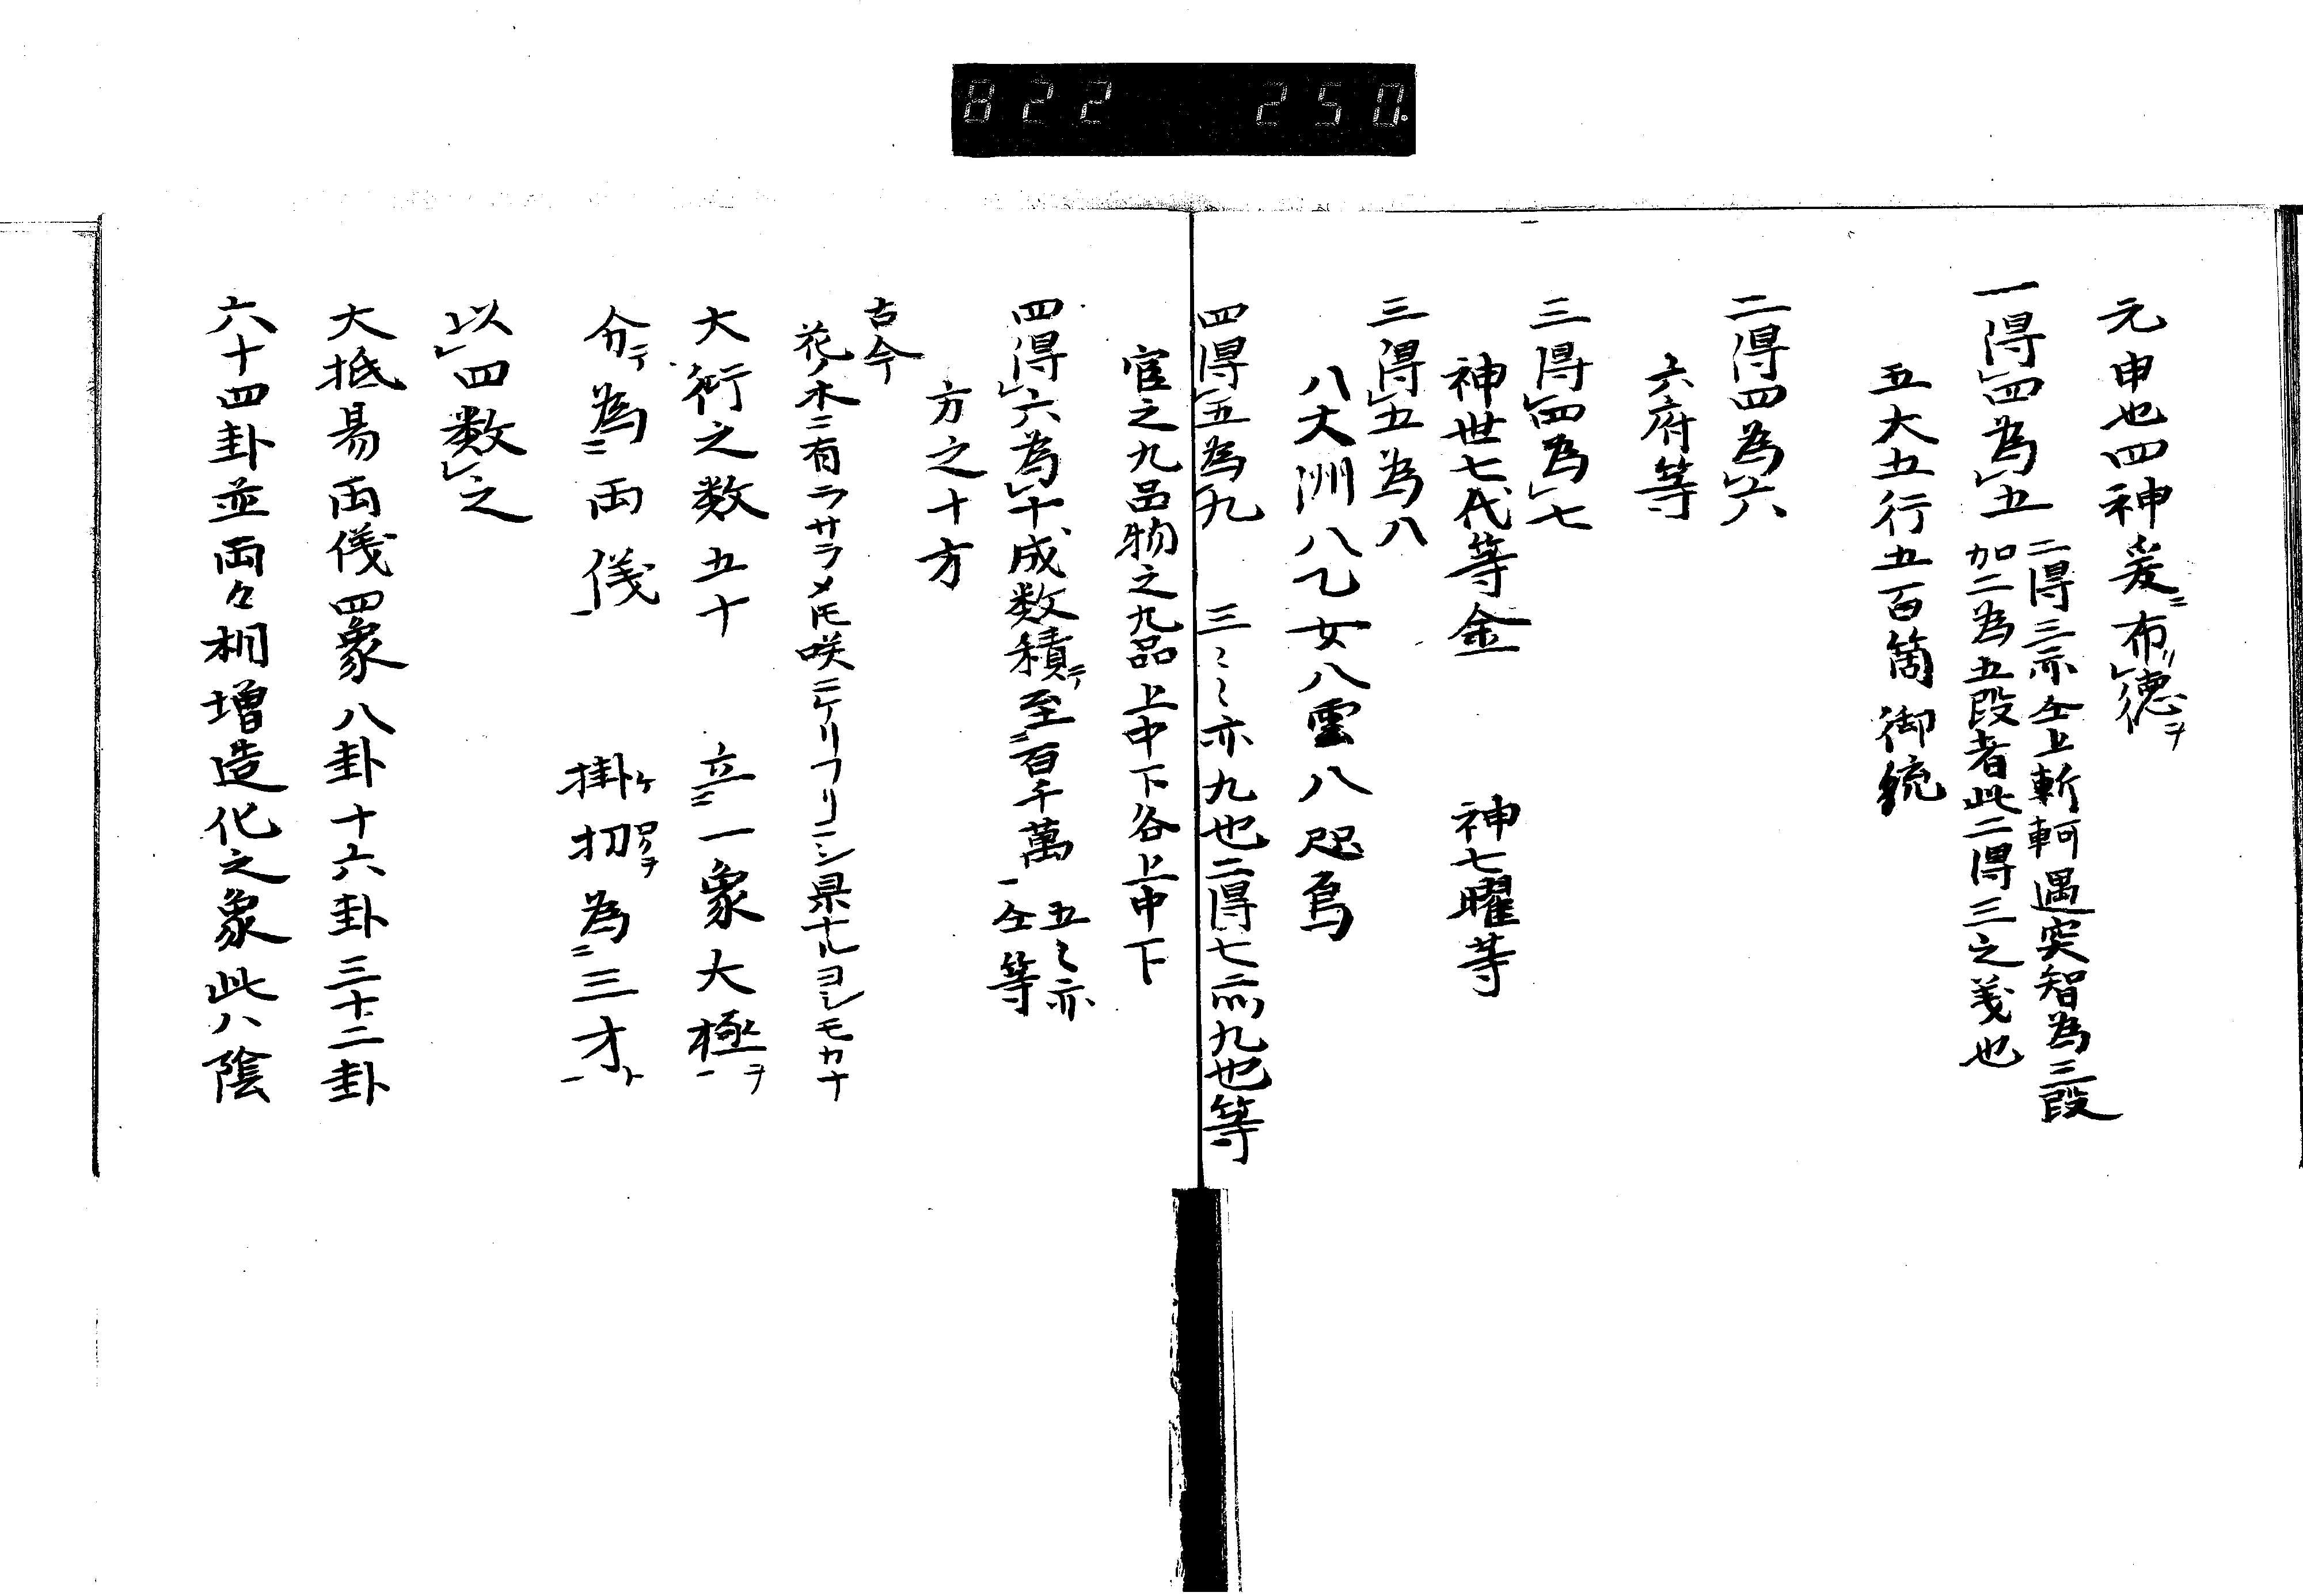 822 250.
元申也四神爰ニ布レ徳ヲ
一得レ四為レ五
二得三亦仝上斬軻遇突智為三段
加二為五段者此二得三之義也
五大五行五百箇御統
二得四為レ六
六府等
三得レ四為レ七
神世七代等金 神七曜等
三得レ五為八
八大洲八乙女八雲八咫烏
四得レ五為九 三〻〻亦九也二得七亦九也等
官之九品物之九品上中下各上中下
四得レ六為レ十成数積テ至ニ百千萬一
五〻亦
仝等
方之十方
古今
花ノ木ニ有ラサラメ𪜈咲ニケリフリニシ果ナルヨシモカナ
大衍之数五十 立ニ一象大極ヲ一
分テ為ニ両儀一 掛ケ扐ヲ為ニ三才ト一
以レ四数レ之
大抵易両儀四象八卦十六卦三十二卦
六十四卦並両々相増造化之象此八陰